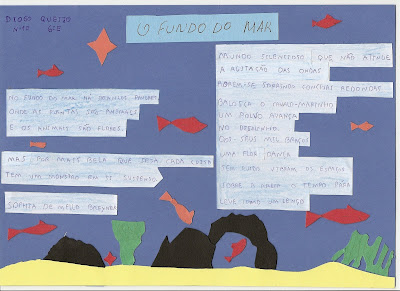 DIOGO QUEIJO
6ºE
O FUNDO DO MAR
NO FUNDO DO MAR HÁ BRANCOS PAVORES
ONDE AS PLANTAS SÃO ANIMAIS
E OS ANIMAIS SÃO FLORES.
MUNDO SILENCIOSO QUE NÃO ATINGE
A AGITAÇÃO DAS ONDAS
ABREM-SE SORRINDO CONCHAS REDONDAS
BALOIÇA O CAVALO-MARINHO
UM POLVO AVANÇA
NO DESALINHO
DOS SEUS MIL BRAÇOS
UMA FLOR DANÇA
SEM RUÍDO VIBRAM OS ESPAÇOS
SOBRE A AREIA O TEMPO POISA
LEVE COMO UM LENÇO
MAS POR MAIS BELA QUE SEJA CADA COISA
TEM UM MONSTRO EM SI SUSPENSO.
SOPHIA DE MELLO BREYNER